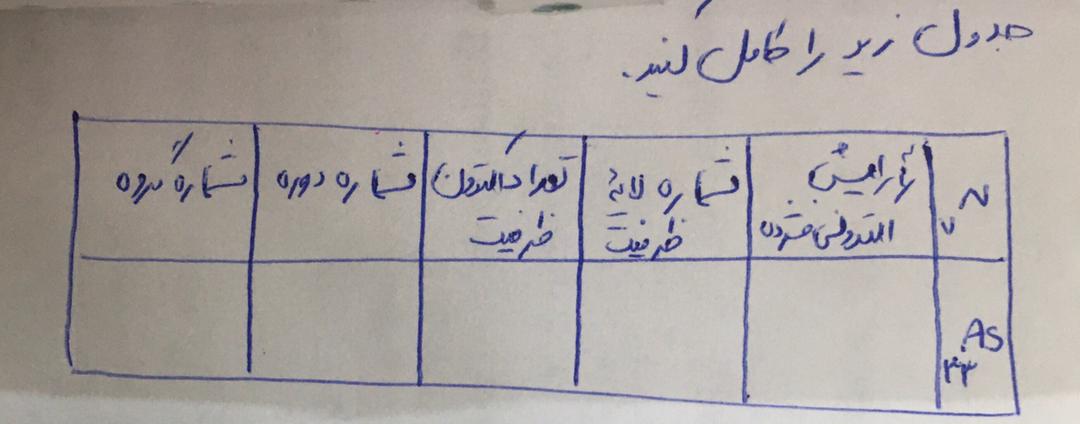 جدول زیر را کامل کنید.
N ۷
آرایش الکترونی فشرده
شماره لایهٔ ظرفیت
تعداد الکترون ظرفیت
شماره دوره
شماره گروه
As ۳۳